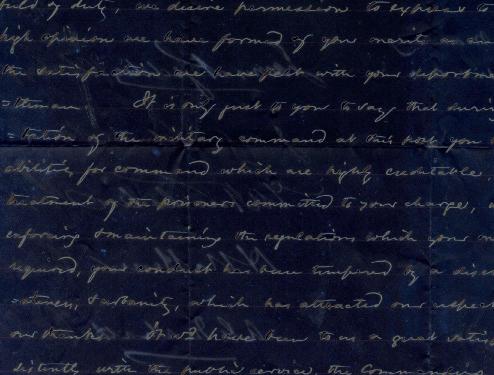 field of duty, we desire permission to express to
high opinion we have formed of your merit as an
the satisfaction we have felt with your deportme
=tleman. It is only just to you to say that durin
=tration of the military command at this post, you
abilities for command which are highly creditable,
treatment of the prisoners committed to your charge,
enforcing & maintaining the regulations which your
required, your conduct has been tempered by a discr
=ateness, & urbanity, which has attracted our respec
our thanks. It wd have been to us a great satis
distently with the public service, the Commanding